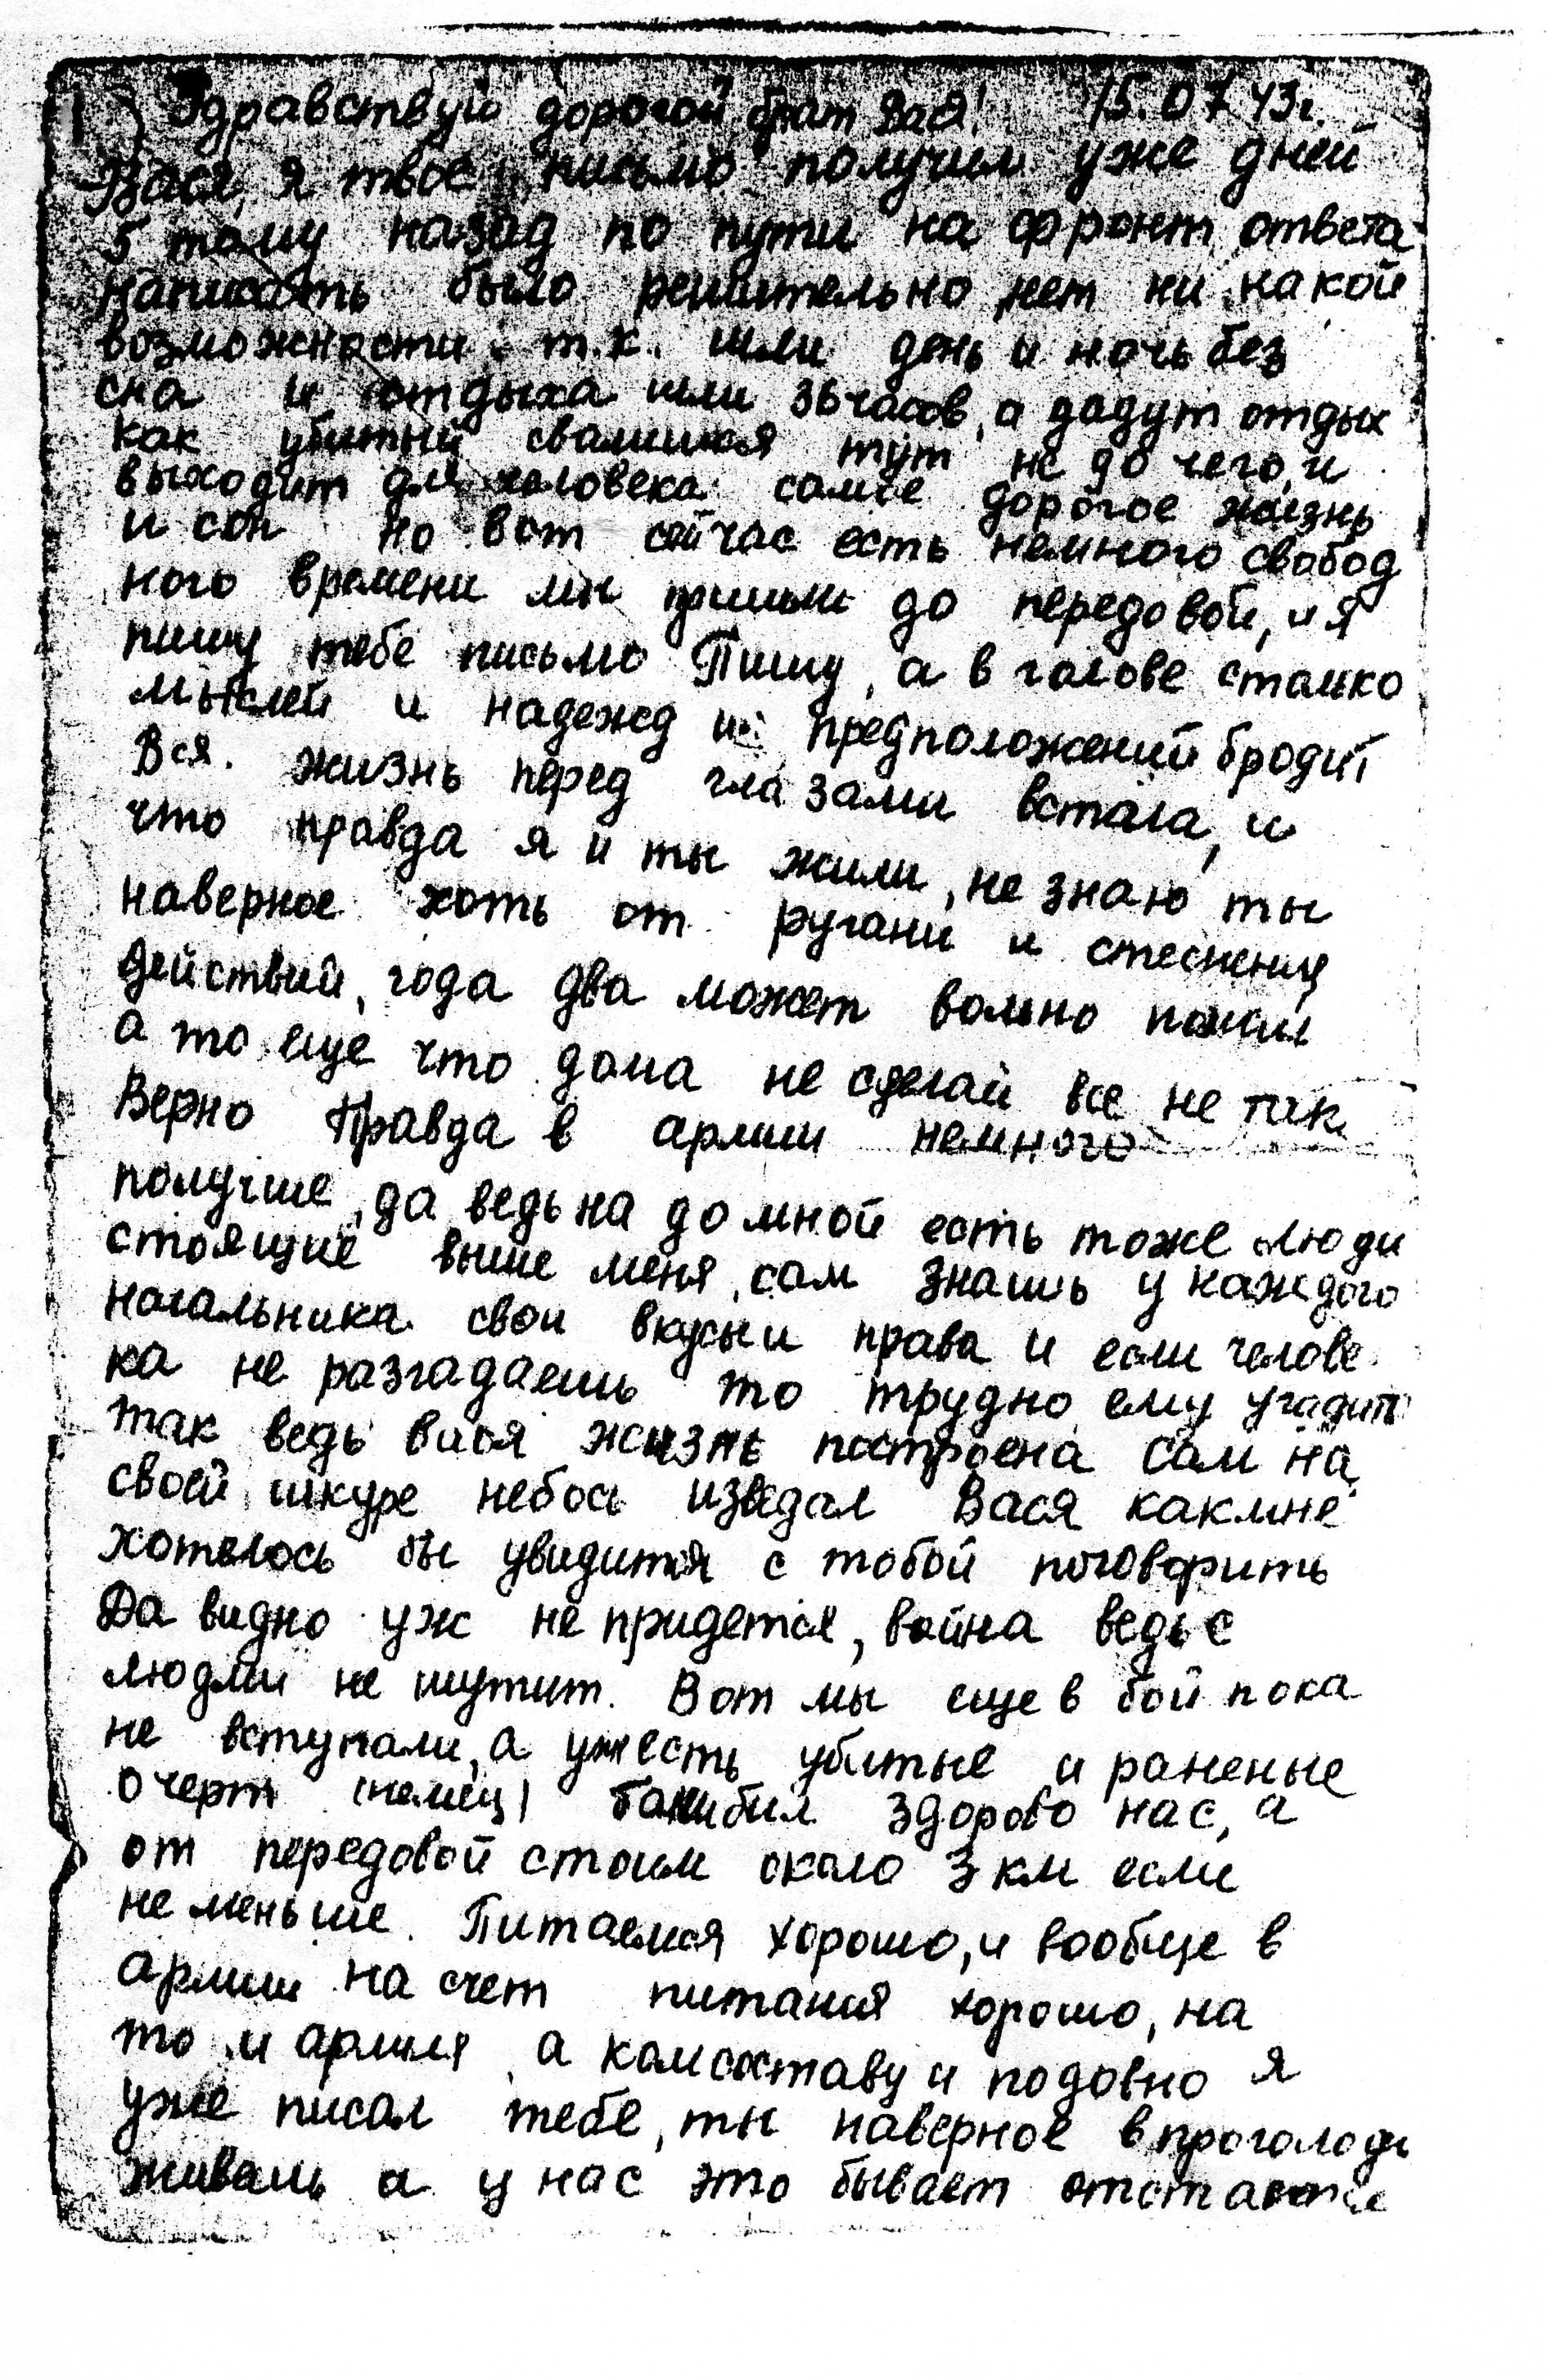 1) Здравствуй дорогой брат Вася! 15.07 43г.
Вася, я твое письмо получил уже дней
5 тому назад по пути на фронт ответа
написать было решительно нет ни какой
возможности т.к. шли день и ночь без
сна и отдыха шли 36 часов, а дадут отдых
как убитый свалишся тут не до чего, и
выходит для человека самое дорогое жизнь
и сон но вот сейчас есть немного свобод
ного времени мы пришли до передовой, и я
пишу тебе письмо Пишу, а в голове столко
мыслей и надежд и предположений бродит
Вся жизнь перед глазами встала, и
что правда я и ты жили, не знаю ты
наверное хоть от ругани и стеснениц
действий, года два может вольно пожил
а то еще что дома не сделай все не так
Верно Правда в армии немного
получше, да ведь на до мной есть тоже люди
стоящие выше меня, сам знаишь у каждого
начальника свои вкусы и права и если челове
ка не разгадаешь то трудно ему угадить
так ведь вися жизнь построена сам на
своей шкуре небось изведал Вася как мне
хотелось бы увидится с тобой поговорить
Да видно уж не придется, война ведь с
людми не шутит. Вот мы еще в бой пока
не вступали, а уж есть убитые и раненые
о черт (немец) бомбил здорово нас, а
от передовой стоим около 3 км если
не меньше. Питаемся хорошо, и вообще в
армии на счет питания хорошо, на
то и армия, а комсоставу и подовно я
уже писал тебе, ты наверное впроголодь
живешь а у нас это бывает отстается